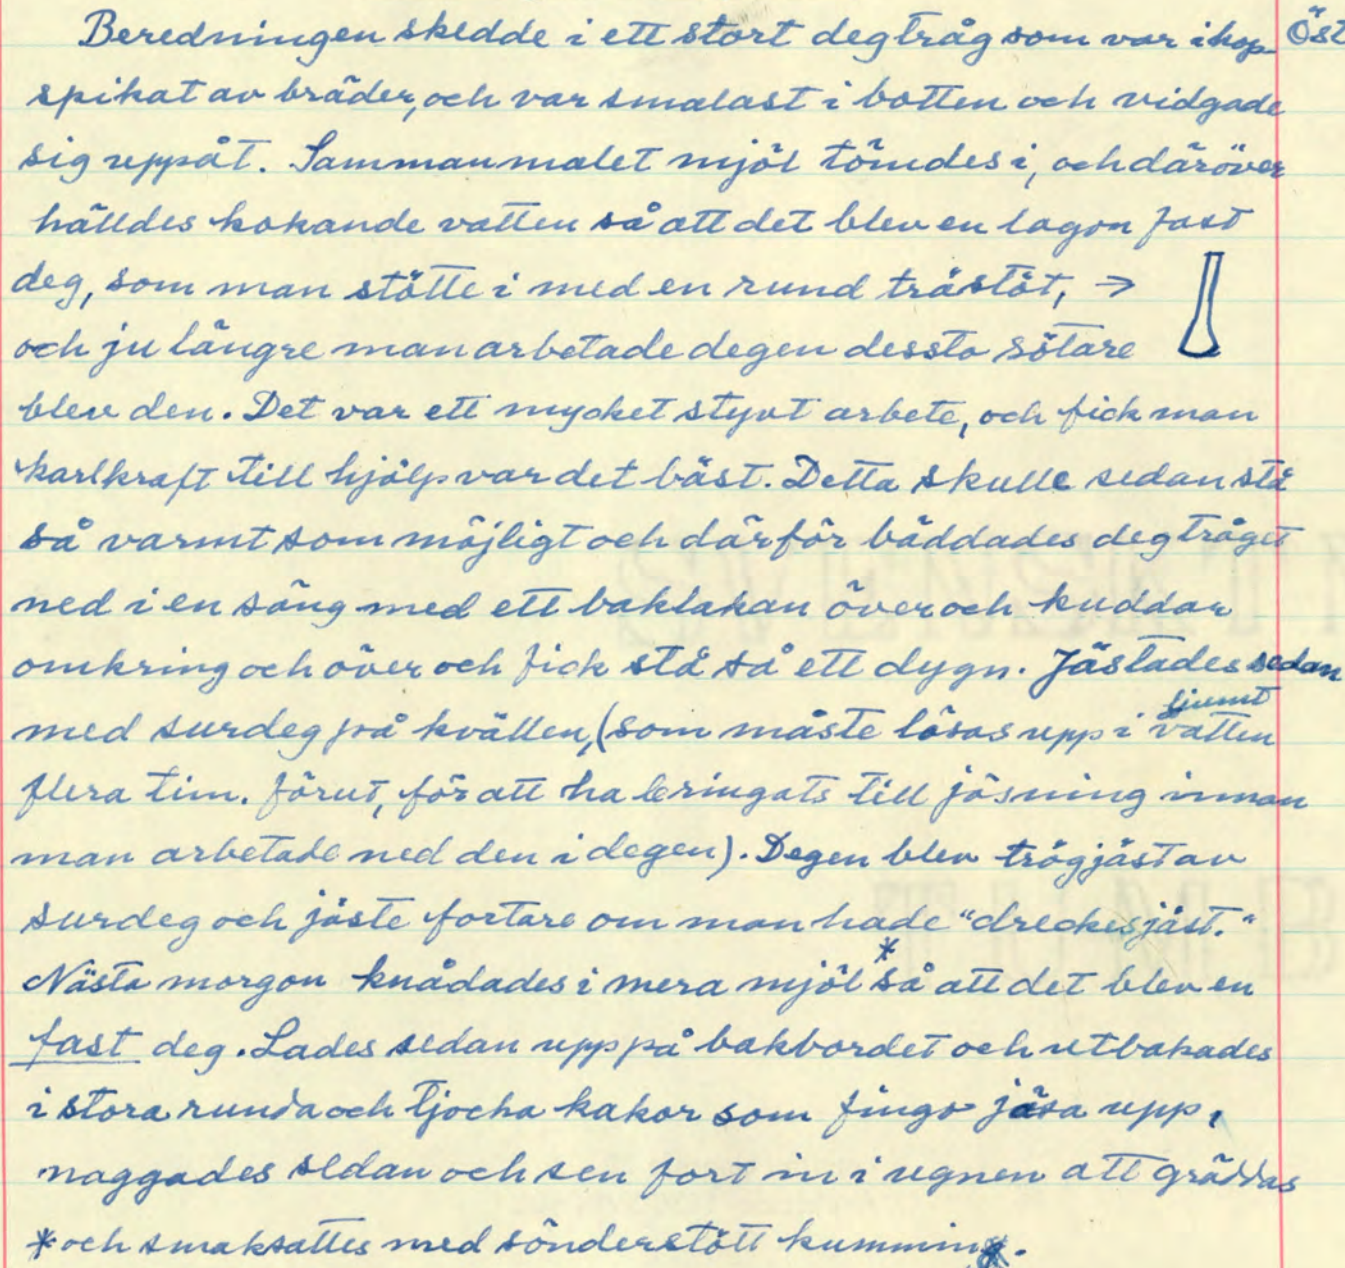 Beredningen skedde i ett stort degtråg som var ihop- Öst
spikat av bräder, och var smalast i botten och vidgade
sig uppåt. Sammanmalet mjöl tömdes i, och däröver
hälldes kokande vatten så att det blev en lagon fast
deg, som man stötte i med en rund trästöt, →
och ju längre man arbetade degen dessto sötare
blev den. Det var ett mycket styvt arbete, och fick man
karlkraft till hjälp var det bäst. Detta skulle sedan stå
så varmt som möjligt och därför bäddades degtråget
ned i en säng med ett baklakan över och kuddar
omkring och över och fick stå så ett dygn. Jästades sedan
med surdeg på kvällen, (som måste lösas upp i ljumt vatten
flera tim. förut, för att ha bringats till jäsning innan
man arbetade ned den i degen). Degen blev trögjäst av
surdeg och jäste fortare om man hade "dreckesjäst."
Nästa morgon knådades i mera mjöl * så att det blev en
fast deg. Lades sedan upp på bakbordet och utbakades
i stora runda och tjocka kakor som fingo jäsa upp,
naggades sedan och sen fort in i ugnen att gräddas
* och smaksattes med sönderstött kummin.